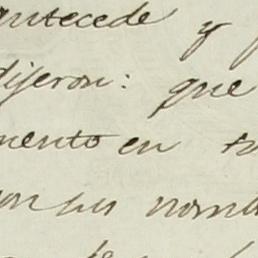 antecede y
dijeron: que
mento en su
con sus nomb